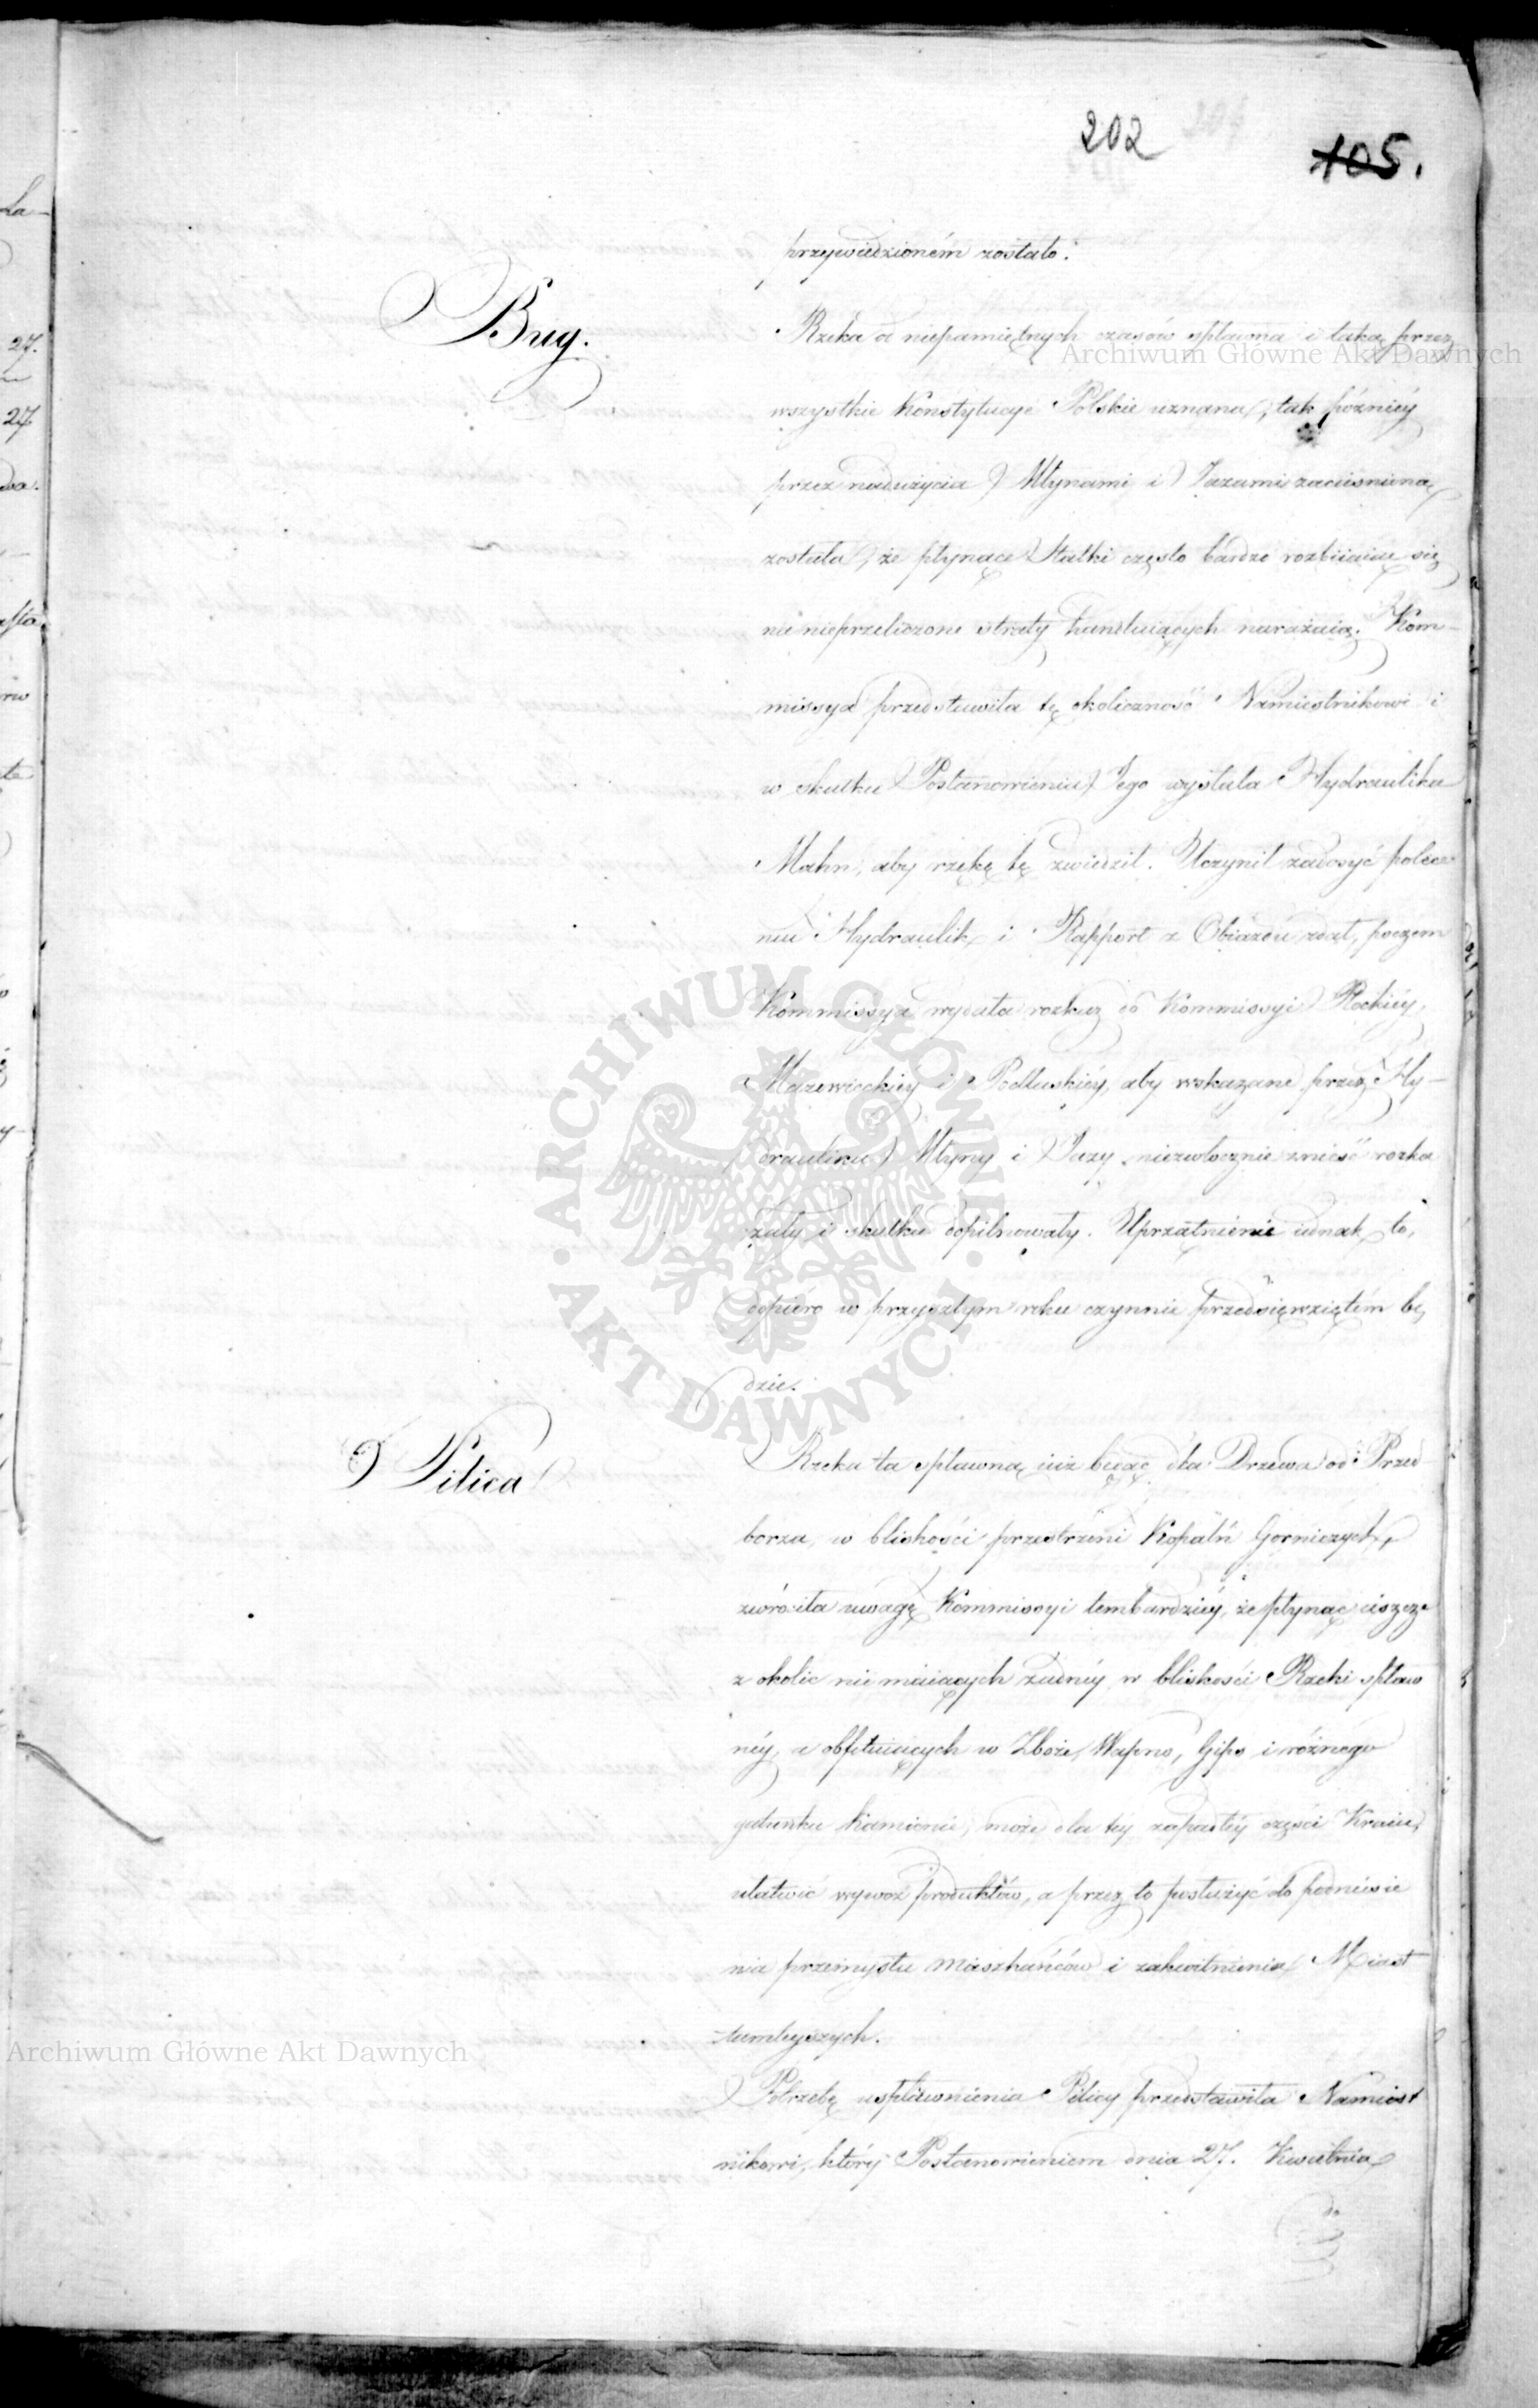 202
105.
przywiedzioném zostało.
Bug.
Rzeka od niepamiętnych czasów spławna i taką przez
wszystkie Konstytucye Polskie uznana, tak późniéy
przez nadużycia Młynami i Jazami zaciśniona
została, że płynące Statki często bardzo rozbiiaiąc się
na nieprzeliczone straty handluiących narażaią. Kom-
missya przedstawiła tę okoliczność Namiestnikowi i
w skutku Postanowienia Jego wysłała Hydraulika
Mahn, aby rzekę tę zwiedził. Uczynił zadosyć polece
niu Hydraulik i Rapport z Obiazdu zdał, poczem
Kommissya wydała rozkaz do Kommissyi Płockiéy,
Mazowieckiéy i Podlaskiéy, aby wskazane przez Hy-
draulika Młyny i Jazy niezwłocznie znieść rozka
zały i skutku dopilnowały. Uprzątnienie iednak to,
dopiéro w przyszłym roku czynnie przedsięwziętém bę
dzie.
Pilica
Rzeka ta spławną iuż będąc dla Drzewa od Przed-
borza, w bliskości przestrzeni Kopalń Gorniczych,
zwróciła uwagę Kommissyi tembardziéy, że płynąc ieszcze
z okolic nie maiących żadnéy w bliskości Rzeki spław
néy, a obfituiących w Zboże, Wapno, Gips i różnego
gatunku kamienie, może dla téy zapadłéy części Kraiu
ułatwić wywoz produktów, a przez to posłużyć do podniesie
nia przemysłu mieszkańców i zakwitnienia Miast
tamteyszych.
Potrzebę uspławnienia Pilicy przedstawiła Namiest
nikowi, który Postanowieniem dnia 27. Kwietnia
27.
27
Archiwum Główne Akt Dawnych
ARCHIWUM GŁÓWNE AKT DAWNYCH
Archiwum Główne Akt Dawnych